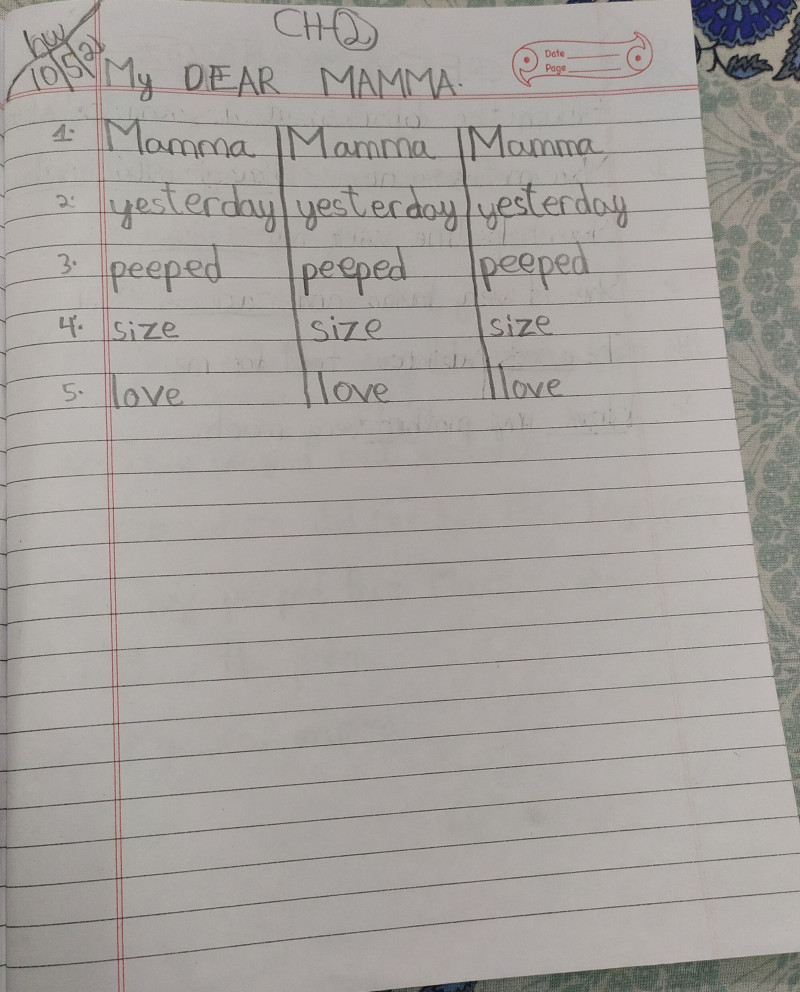 CH-2
hw
10/5/2
My DEAR MAMMA.
Date
Page
1. Mamma Mamma Mamma
2. yesterday yesterday yesterday
3. peeped peeped peeped
4. size size size
5. love love love